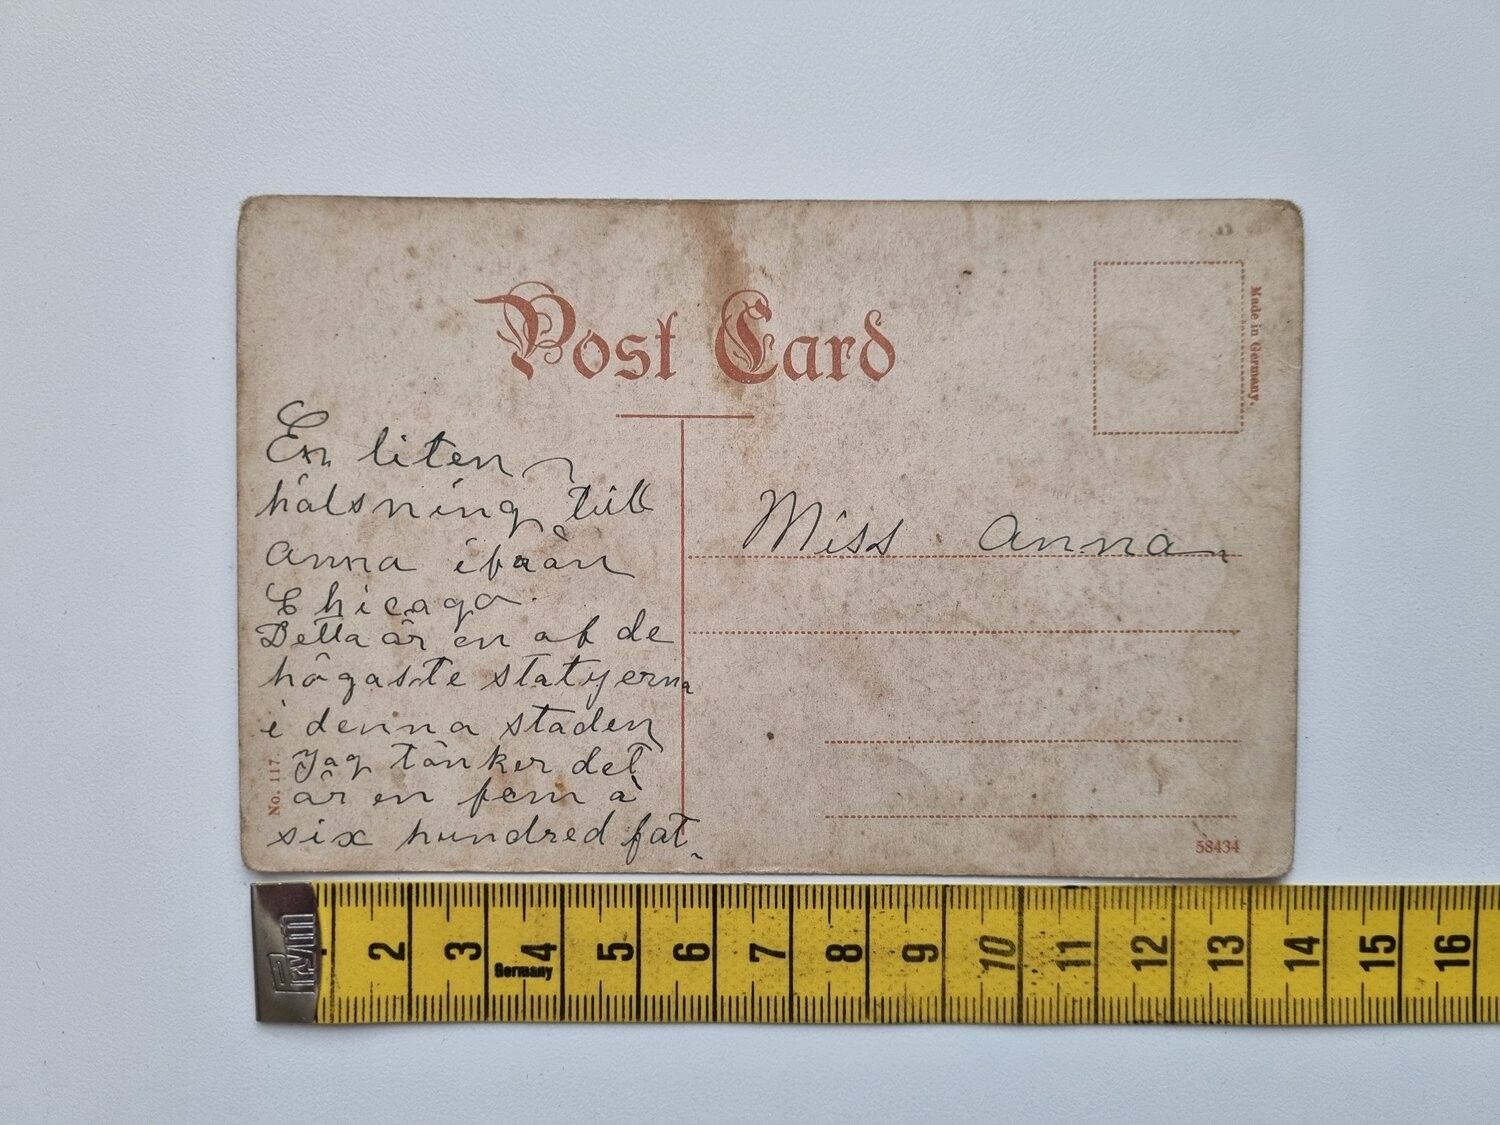 Post Card
Made in Germany.
En liten
hälsning till
Anna ifrån
Chicago.
Detta är en af de
högaste statyerna
i denna staden
Jag tänker det
är en fem à
six hundred fat.
Miss Anna
No. 117.
58434
Prym
1 2 3 4 5 6 7 8 9 10 11 12 13 14 15 16
Germany